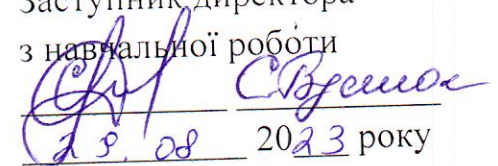 Заступник директора
з навчальної роботи
29.08 2023 року